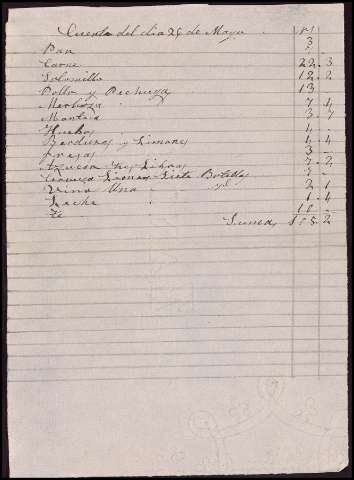 Cuenta del dia 29 de Mayo
Pan 3
Carne 22.3
Solomillo 12.2
Pollo y Pechuga 13
Merluza 7.4
Manteca 3.7
Huebos 4
Berduras y Limones 4.4
Fresas 3
Azucar tres Libras 7.2
Siete Botellas
Vino Una 2.1
Leche 1.4
Te 10
Suma 2